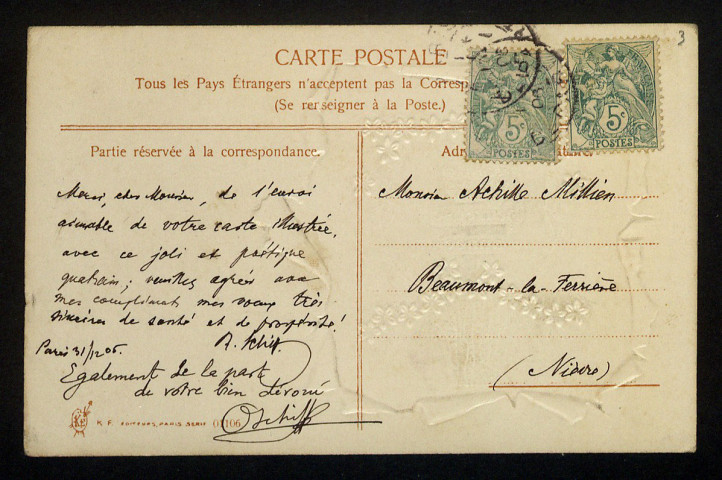 3
CARTE POSTALE
Tous les Pays Étrangers n'acceptent pas la Corresp
(Se renseigner à la Poste.)
5c
POSTES
5c
POSTES
Partie réservée à la correspondance.
Merci, cher Monsieur, de l'envoi
aimable de votre carte illustrée,
avec ce joli et poétique
quatrain; veuillez agréer avec
mes compliments mes vœux très
sincères de santé et de prospérité!
Paris 31/12 05.
Egalement de la part
de votre bien dévoué
K. F. EDITEURS, PARIS SERIE 0 106
Adr
Monsieur Achille Millien
Beaumont-la-Ferrière
(Nièvre)